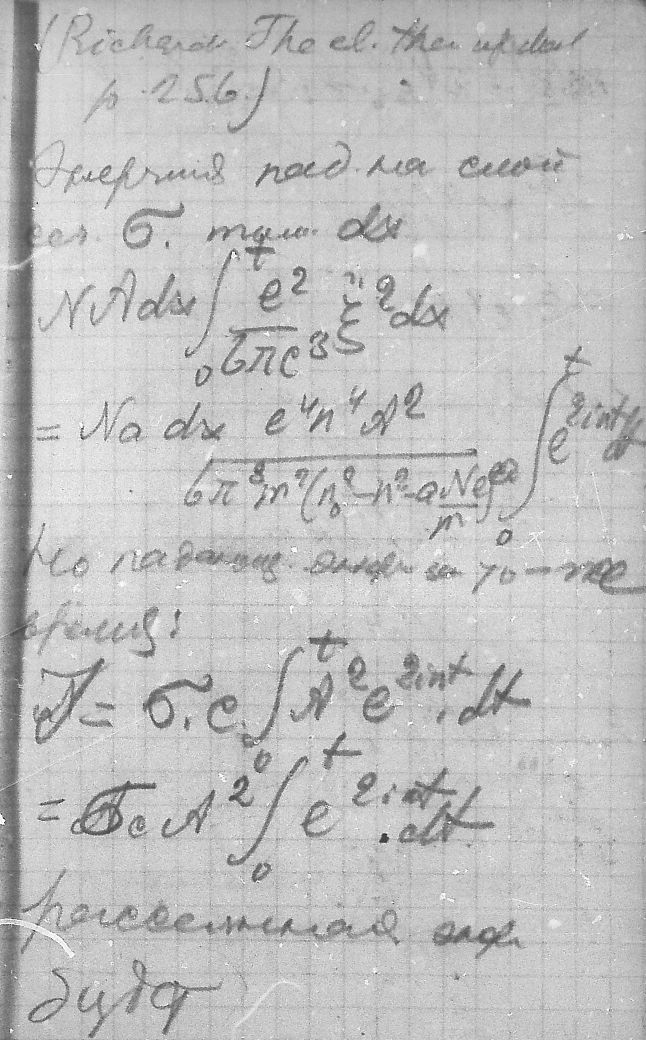 (Richards The el. the
p. 256.)
Энергия пад. на слой
сеч. σ. толщ. dx
N A dx ∫₀ᵗ e²/(6πc³) ξ̈² dx
= Na dx e⁴n⁴A²/(6π³m²(n₀²-n²-a Ne²/m)²) ∫₀ᵗ e^{2int} dt
Но падающ. энерг. за то-же
время:
J = σ. c. ∫₀ᵗ A² e^{2int}. dt
= σc A² ∫₀ᵗ e^{2int}. dt
рассеянная энер.
будет